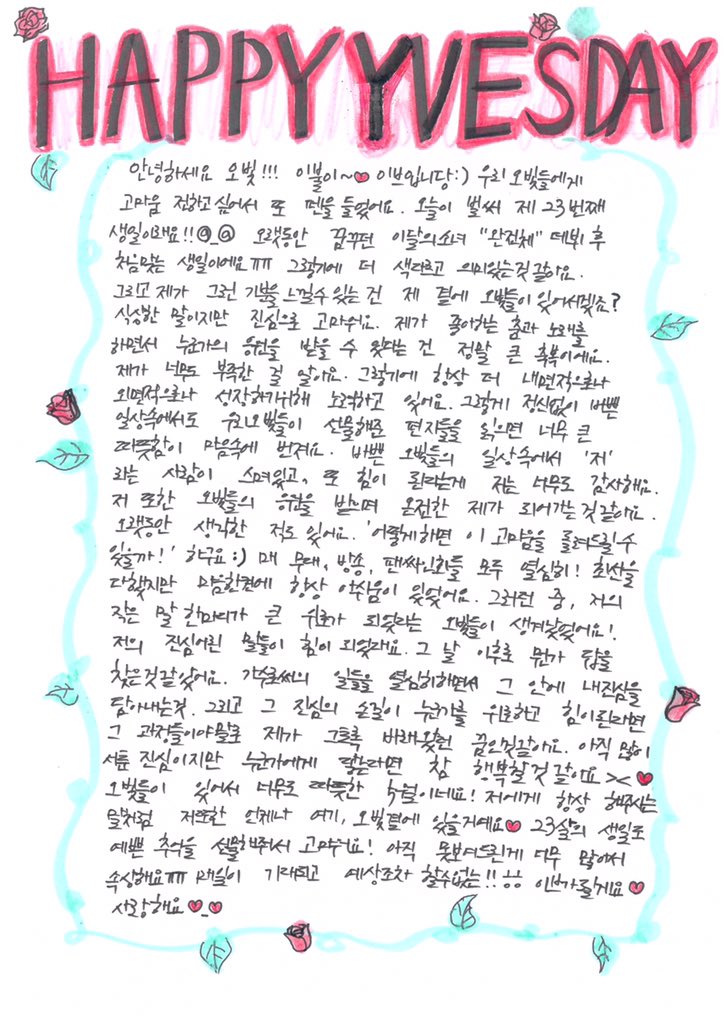 HAPPY YVESDAY
안녕하세요 오빛!!! 이불이~♥ 이브입니당:) 우리 오빛들에게
고마움 전하고 싶어서 또 펜을 들었어요. 오늘이 벌써 제 23번째
생일이래요!!@_@ 오랫동안 꿈꾸던 이달의소녀 "완전체" 데뷔 후
처음맞는 생일이에요ㅠㅠ 그렇기에 더 색다르고 의미있는것 같아요.
그리고 제가 그런 기분을 느낄수 있는 건 제 곁에 오빛들이 있어서겠죠?
식상한 말이지만 진심으로 고마워요. 제가 좋아하는 춤과 노래를
하면서 누군가의 응원을 받을 수 있다는 건 정말 큰 축복이에요.
제가 너무도 부족한 걸 알아요. 그렇기에 항상 더 내면적으로나
외면적으로나 성장하기위해 노력하고 있어요. 그렇게 정신없이 바쁜
일상속에서도 우리오빛들이 선물해준 편지들을 읽으면 너무 큰
따뜻함이 마음속에 번져요. 바쁜 오빛들의 일상속에서 '저'
라는 사람이 스며있고, 또 힘이 된다는게 저는 너무도 감사해요.
저 또한 오빛들의 응원을 받으며 온전한 제가 되어가는것 같아요.
오랫동안 생각한 적도 있어요. '어떻게하면 이 고마움을 돌려드릴수
있을까!' 하구요:) 매 무대, 방송, 팬싸인회들 모두 열심히! 최선을
다했지만 마음한켠에 항상 아쉬움이 있었어요. 그러던 중, 저의
작은 말 한마디가 큰 위로가 되었다는 오빛들이 생겨났었어요!
저의 진심어린 말들이 힘이 되었대요. 그 날 이후로 뭔가 답을
찾은것같았어요. 가수로써의 일들을 열심히하면서 그 안에 내진심을
담아내는것. 그리고 그 진심의 손길이 누군가를 위로하고 힘이된다면
그 과정들이야말로 제가 그토록 바래왔던 꿈인것같아요. 아직 많이
서툰 진심이지만 누군가에게 닿는다면 참 행복할것 같아요 >< ♥
오빛들이 있어서 너무도 따뜻한 생일이네요! 저에게 항상 해주시는
말처럼 저또한 언제나 여기, 오빛곁에 있을거예요♥ 23살의 생일도
예쁜 추억을 선물해줘서 고마워요! 아직 못보여드린게 너무 많아서
속상해요ㅠㅠ 매일이 기대되고 예상조차 할수없는!! 이브가될게요♥
사랑해요 ♥_♥